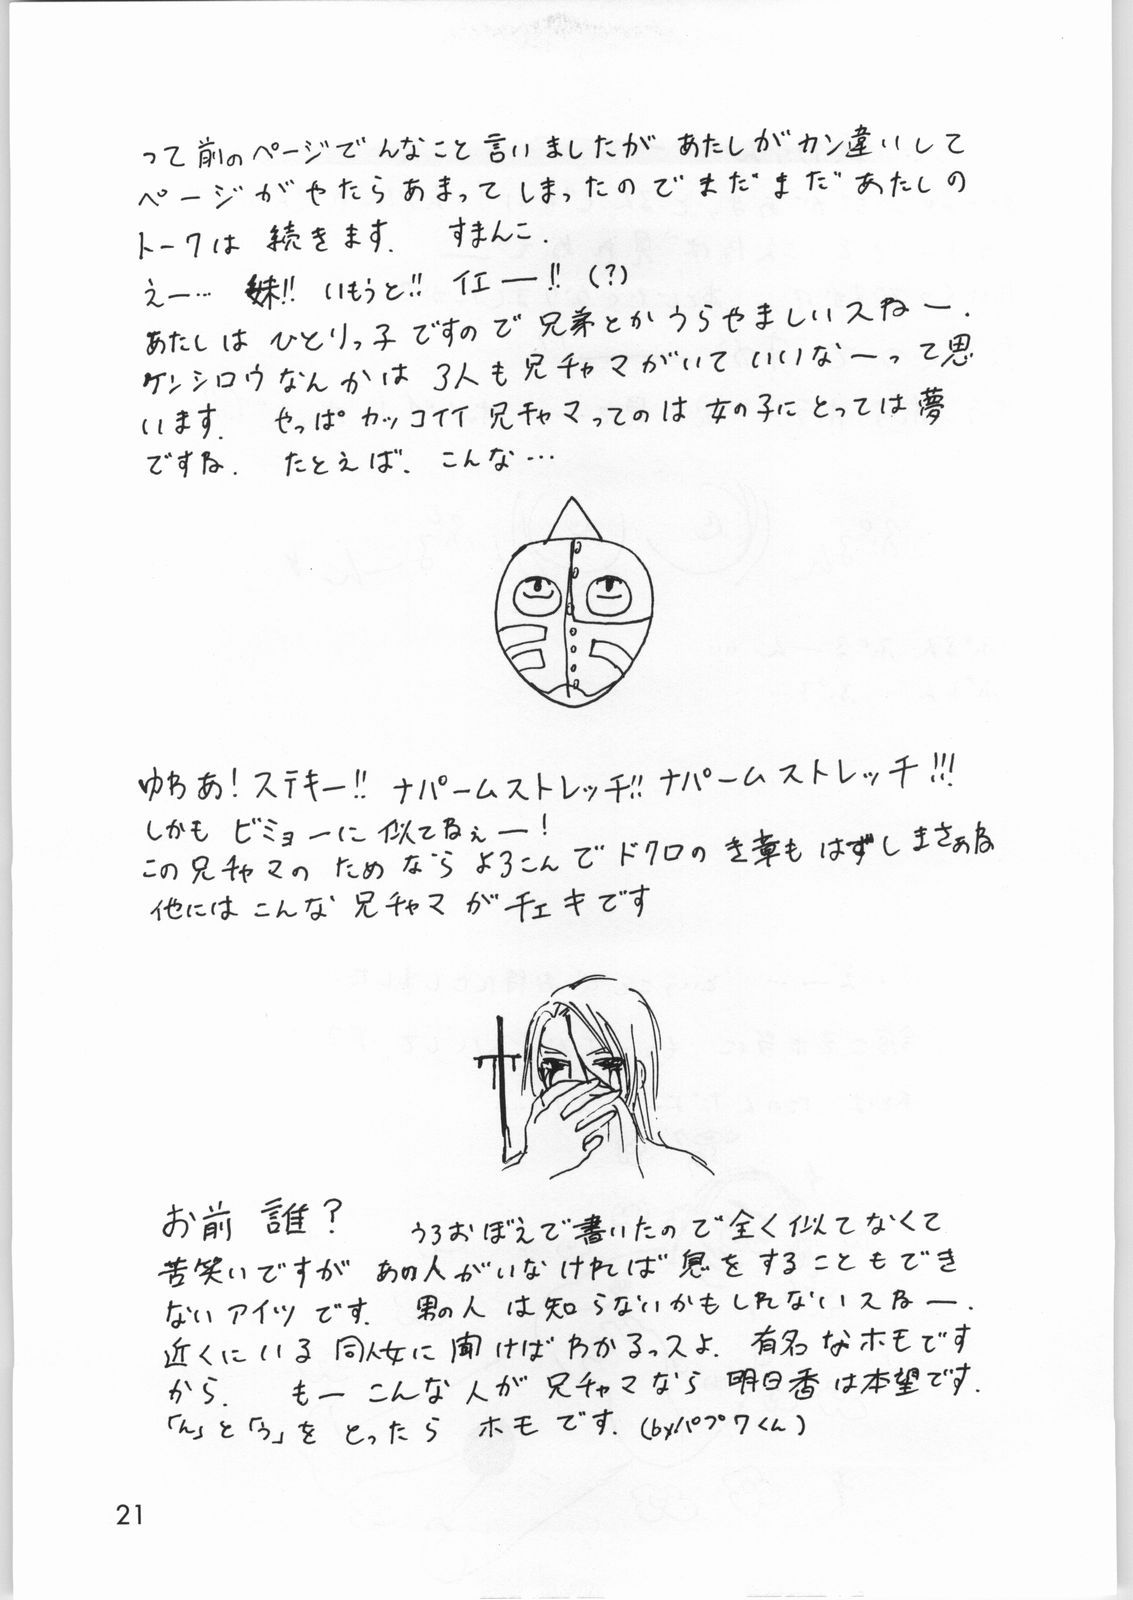 って前のページでんなこと言いましたが あたしがカン違いして
ページがやたらあまってしまったのでまだまだあたしの
トークは 続きます. すまんこ.
えー… 妹!! いもうと!! イエー!! (?)
あたしは ひとりっ子ですので兄弟とかうらやましいスねー.
ケンシロウなんかは 3人も兄チャマがいていいなーって思
います. やっぱ カッコイイ 兄チャマってのは女の子にとっては夢
ですね. たとえば、こんな…
ゆわあ! ステキー!! ナパームストレッチ!! ナパームストレッチ!!!
しかも ビミョーに似てねぇー!
この兄チャマの ためなら よろこんで ドクロのき章も はずしまさぁね
他には こんな 兄チャマ が チェキです
お前 誰? うろおぼえで書いたので全く似てなくて
苦笑いですが あの人がいなければ 息をすることもでき
ないアイツです. 男の人は知らないかもしれないスねー.
近くにいる 同人女に聞けばわかるっスよ. 有名なホモです
から. もー こんな人が 兄チャマなら 明日香は本望です.
「ん」と「う」を とったら ホモです. (byパプワくん)
21